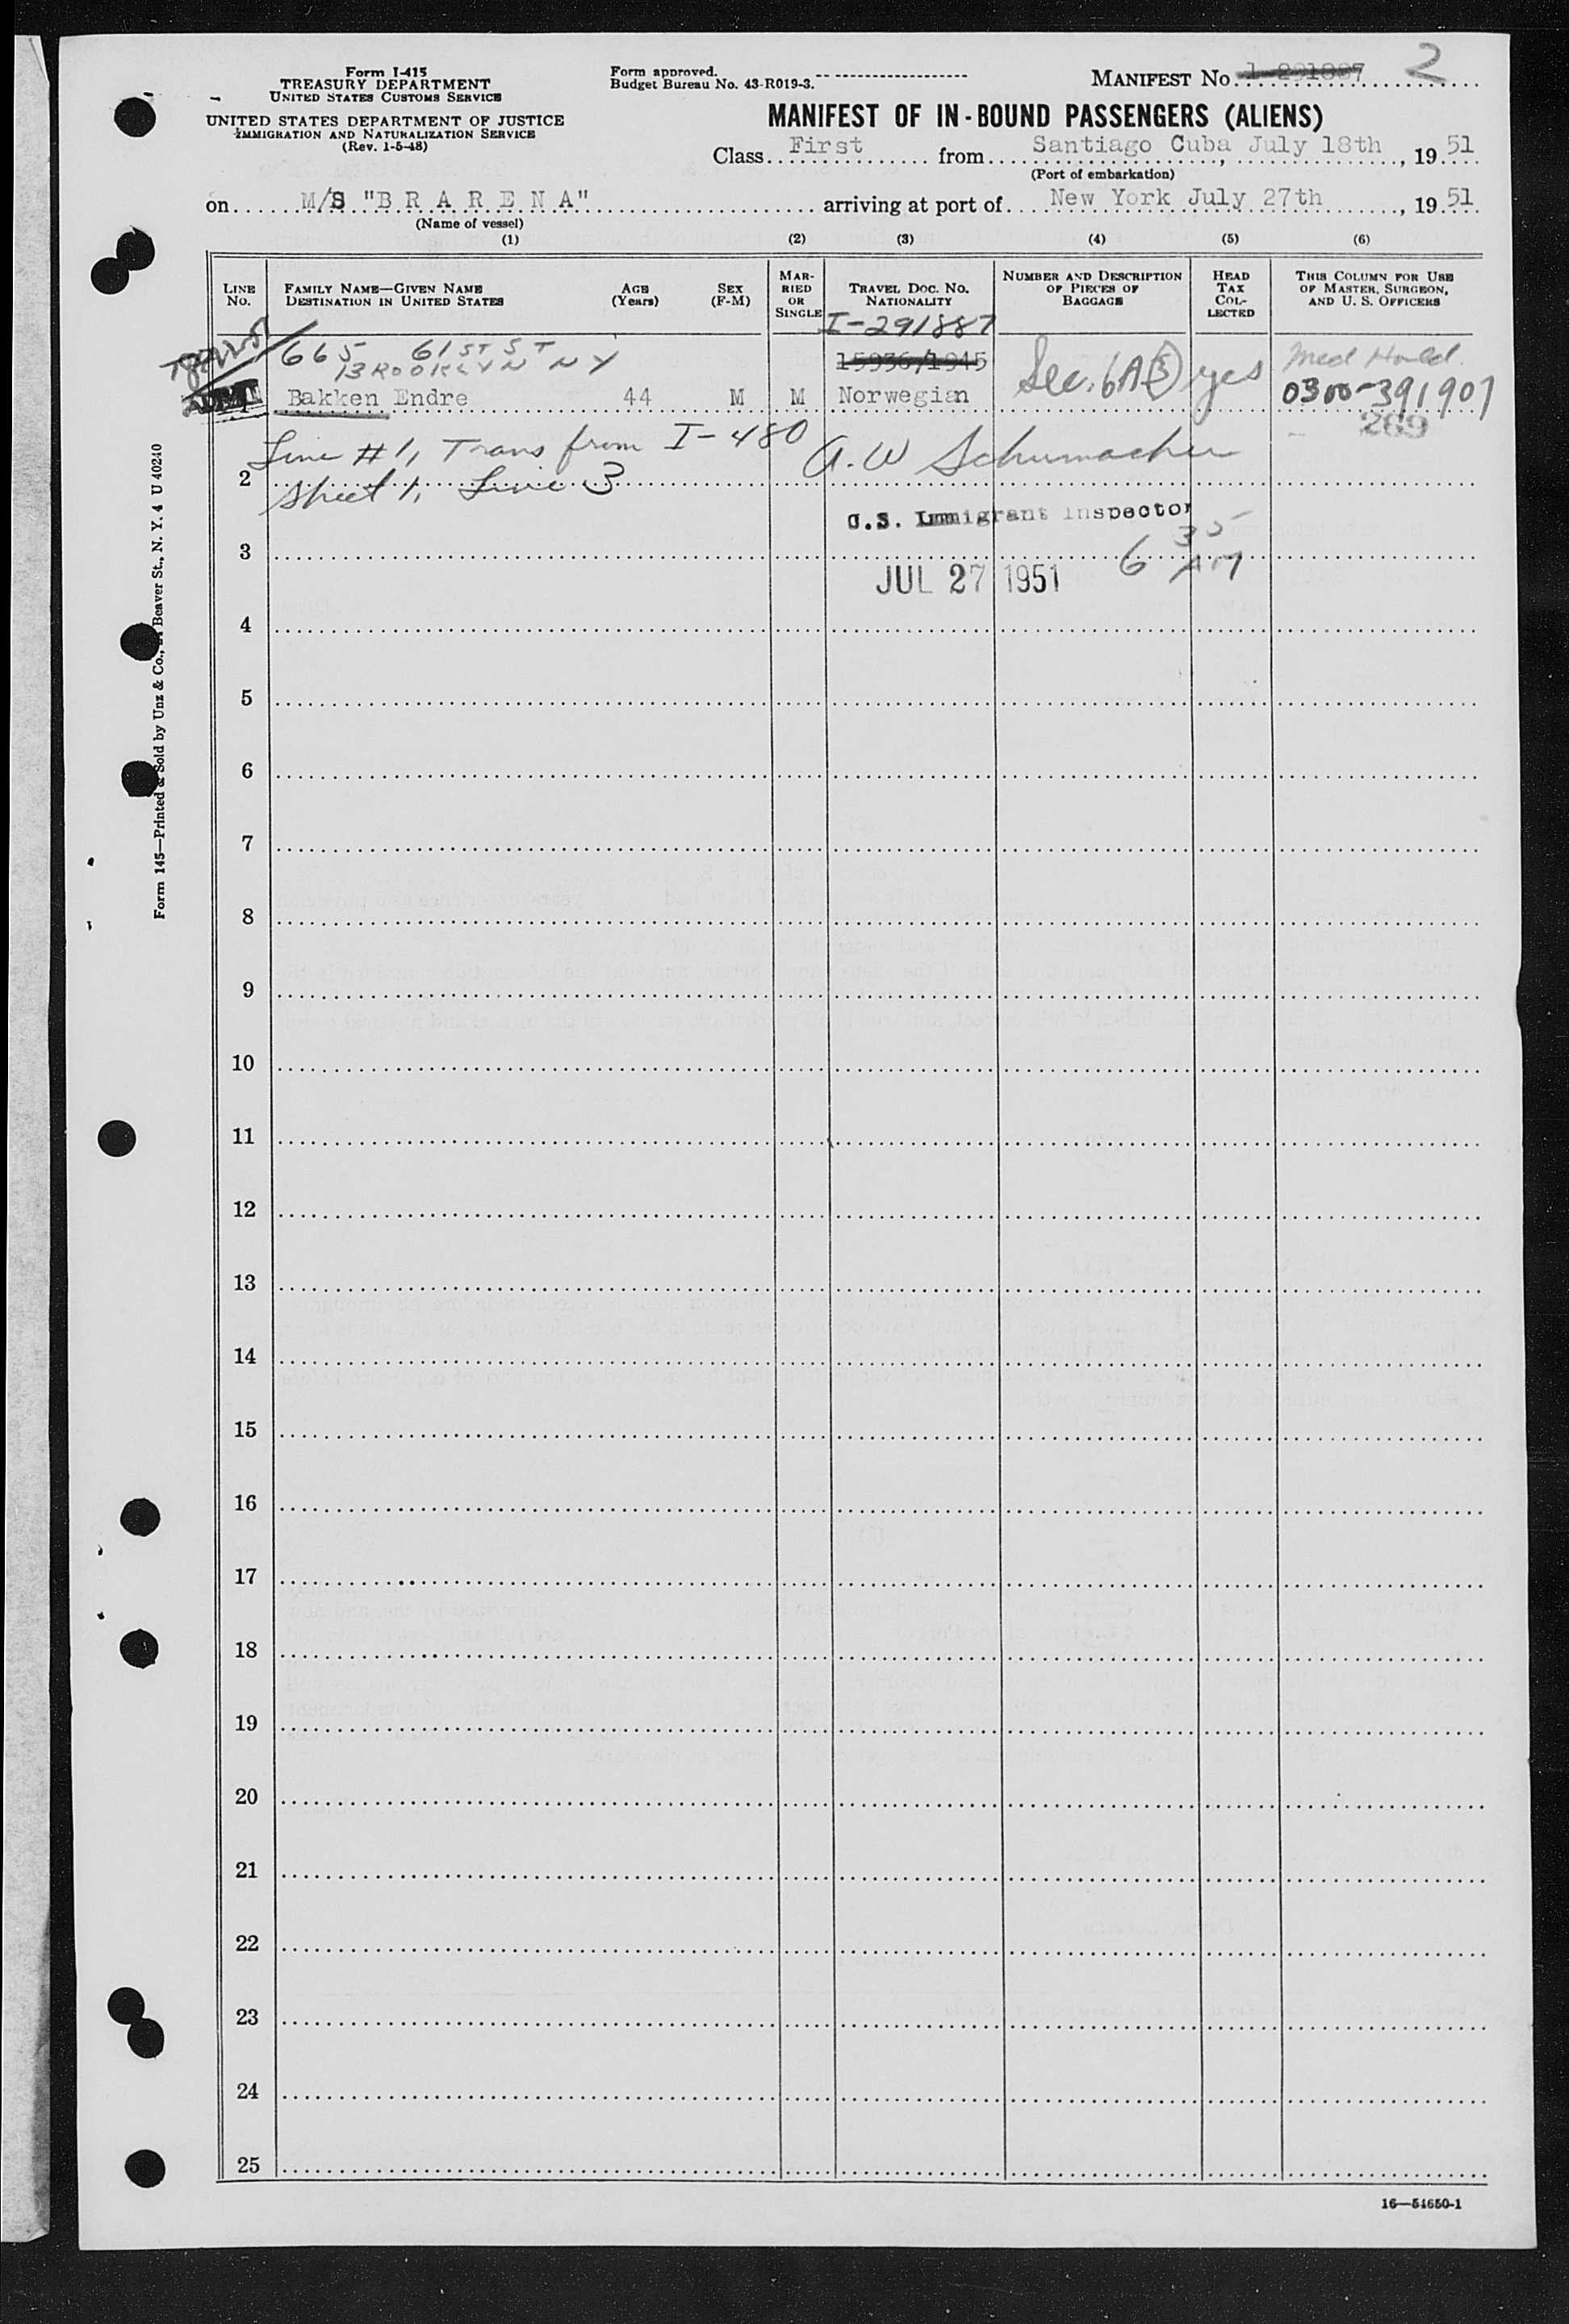 Form I-415
TREASURY DEPARTMENT
UNITED STATES CUSTOMS SERVICE
UNITED STATES DEPARTMENT OF JUSTICE
IMMIGRATION AND NATURALIZATION SERVICE
(Rev. 1-5-48)
Form approved.
Budget Bureau No. 43-R019-3.
MANIFEST No. 1-291887 2
MANIFEST OF IN-BOUND PASSENGERS (ALIENS)
Class First from Santiago Cuba, July 18th, 19 51
(Port of embarkation)
on M/S "B R A R E N A" arriving at port of New York July 27th, 19 51
(Name of vessel)
(1) (2) (3) (4) (5) (6)
LINE No. FAMILY NAME—GIVEN NAME DESTINATION IN UNITED STATES AGE (Years) SEX (F-M) MARRIED OR SINGLE TRAVEL DOC. NO. NATIONALITY NUMBER AND DESCRIPTION OF PIECES OF BAGGAGE HEAD TAX COLLECTED THIS COLUMN FOR USE OF MASTER, SURGEON, AND U. S. OFFICERS
I-291887
665 61ST ST 15936/1945 Med Hould.
BROOKLYN N Y Sec. 6A(3) yes
ADMT Bakken Endre 44 M M Norwegian 0300-391907
289
Line #1, Trans from I-480 A. W Schumacher
2 sheet 1, Line 3
U.S. Immigrant Inspector
3 6 35 AM
JUL 27 1951
4
5
6
7
8
9
10
11
12
13
14
15
16
17
18
19
20
21
22
23
24
25
16—54650-1
Form 145—Printed & Sold by Unz & Co., Beaver St., N. Y. 4 U 40240